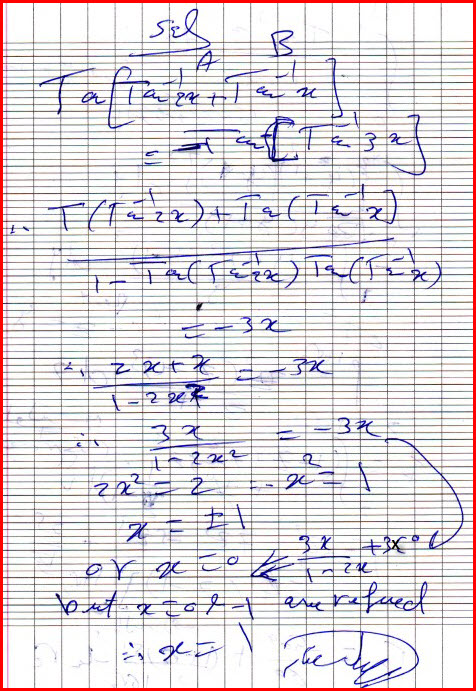 Sol
A B
Tan[Tan⁻¹2x + Tan⁻¹x]
= Tan[Tan⁻¹3x]
∴ T(Tan⁻¹2x) + Tan(Tan⁻¹x)
1 - Tan(Tan⁻¹2x) Tan(Tan⁻¹x)
= -3x
∴ 2x + x / 1 - 2x² = -3x
∴ 3x / 1 - 2x² = -3x
2x² = 2 ∴ x² = 1
x = ±1
or x = 0 ← 3x / 1 - 2x + 3x = 0
but x = 0 & -1 are refused
∴ x = 1